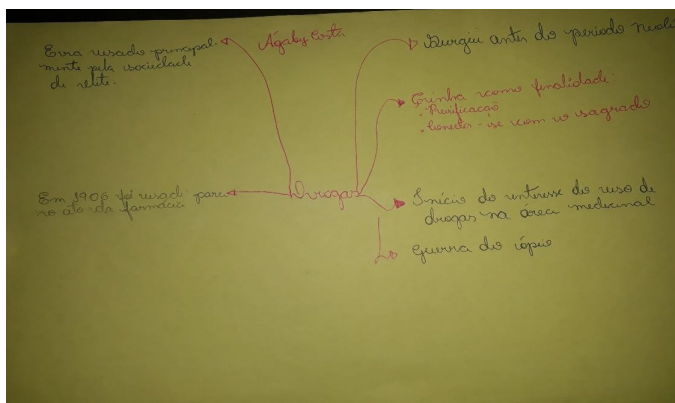 Era usado principal-
mente pela sociedade
de elite.
Ágaby Costa
Surgiu antes do período Neolí
Tinha como finalidade:
• Purificação
• Conectar-se com o sagrado
Em 1906 foi usado para
no ato da farmácia
Drogas
Início do interesse do uso de
drogas na área medicinal
Guerra do ópio